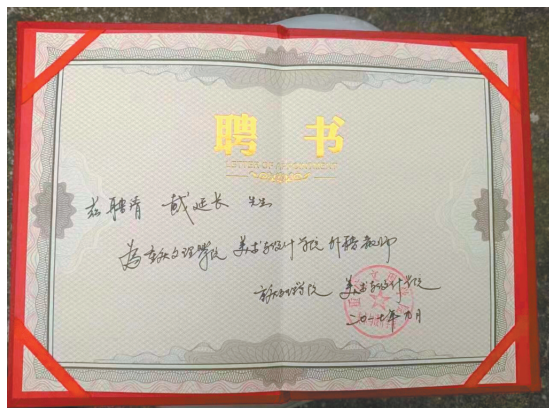 聘 书
LETTER OF APPOINTMENT
兹聘请 戴延长 先生
为重庆文理学院 美术与设计学院 外聘教师
重庆文理学院 美术与设计学院
二〇一七年九月